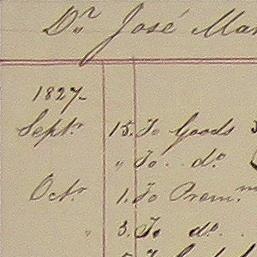 Dr José Mar
1827-
Septr 15. To Goods
" To .. do.
Octr 1. To Prem.m
" 3. To do. .